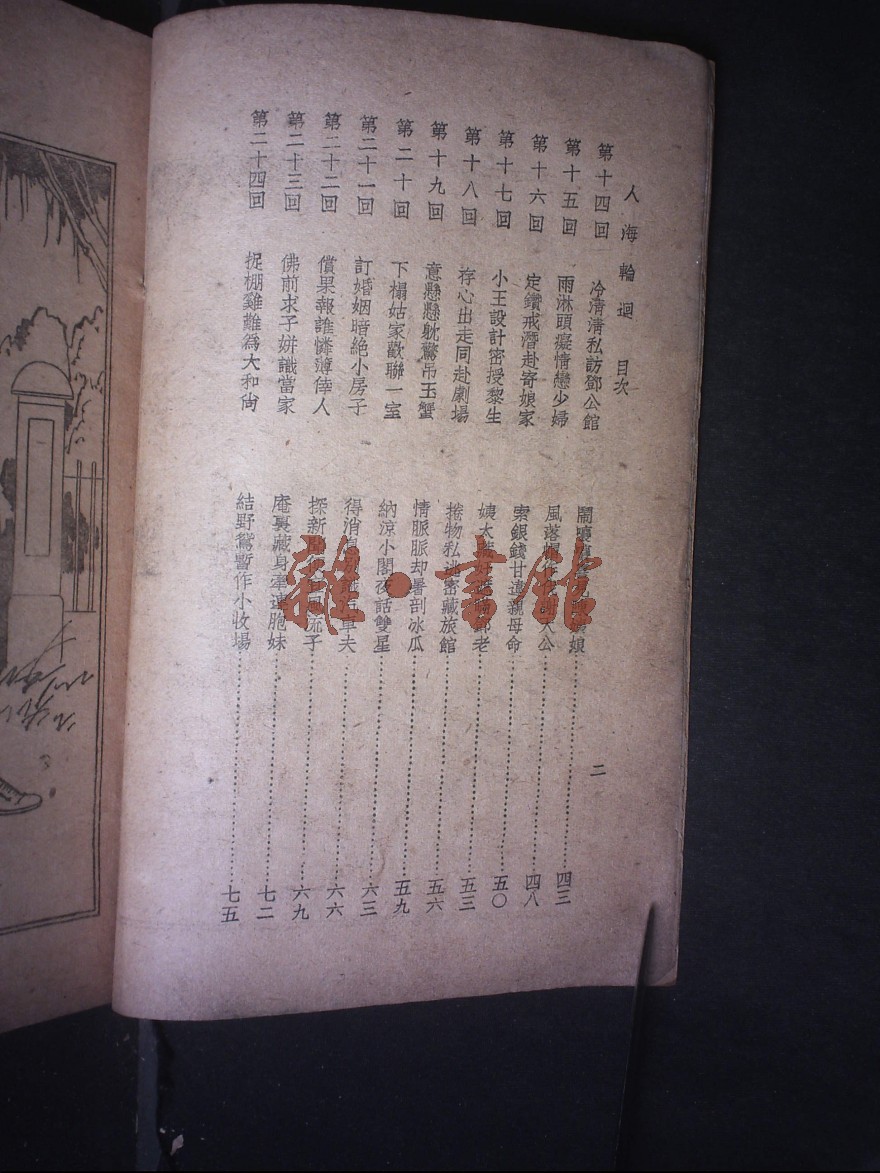 人海輪迴 目次 二
第十四回 冷清清私訪鄧公館 娘 四三
第十五回 雨淋頭癡情戀少婦 風落 人公 四八
第十六回 定鑽戒潛赴寄娘家 索銀錢甘違親母命 五〇
第十七回 小王設計密授黎生 姨太 老 五三
第十八回 存心出走同赴劇場 捲物私逃密藏旅館 五六
第十九回 意懸懸躭驚吊玉蟹 情脈脈却暑剖冰瓜 五九
第二十回 下榻姑家歡聯一室 納涼小閣夜話雙星 六三
第二十一回 訂婚姻暗絶小房子 得消 車夫 六六
第二十二回 償果報誰憐薄倖人 探新 流子 六九
第二十三回 佛前求子姘識當家 庵裏藏身牽連胞妹 七二
第二十四回 捉棚雞難爲大和尙 結野鴛暫作小收場 七五
雜·書館